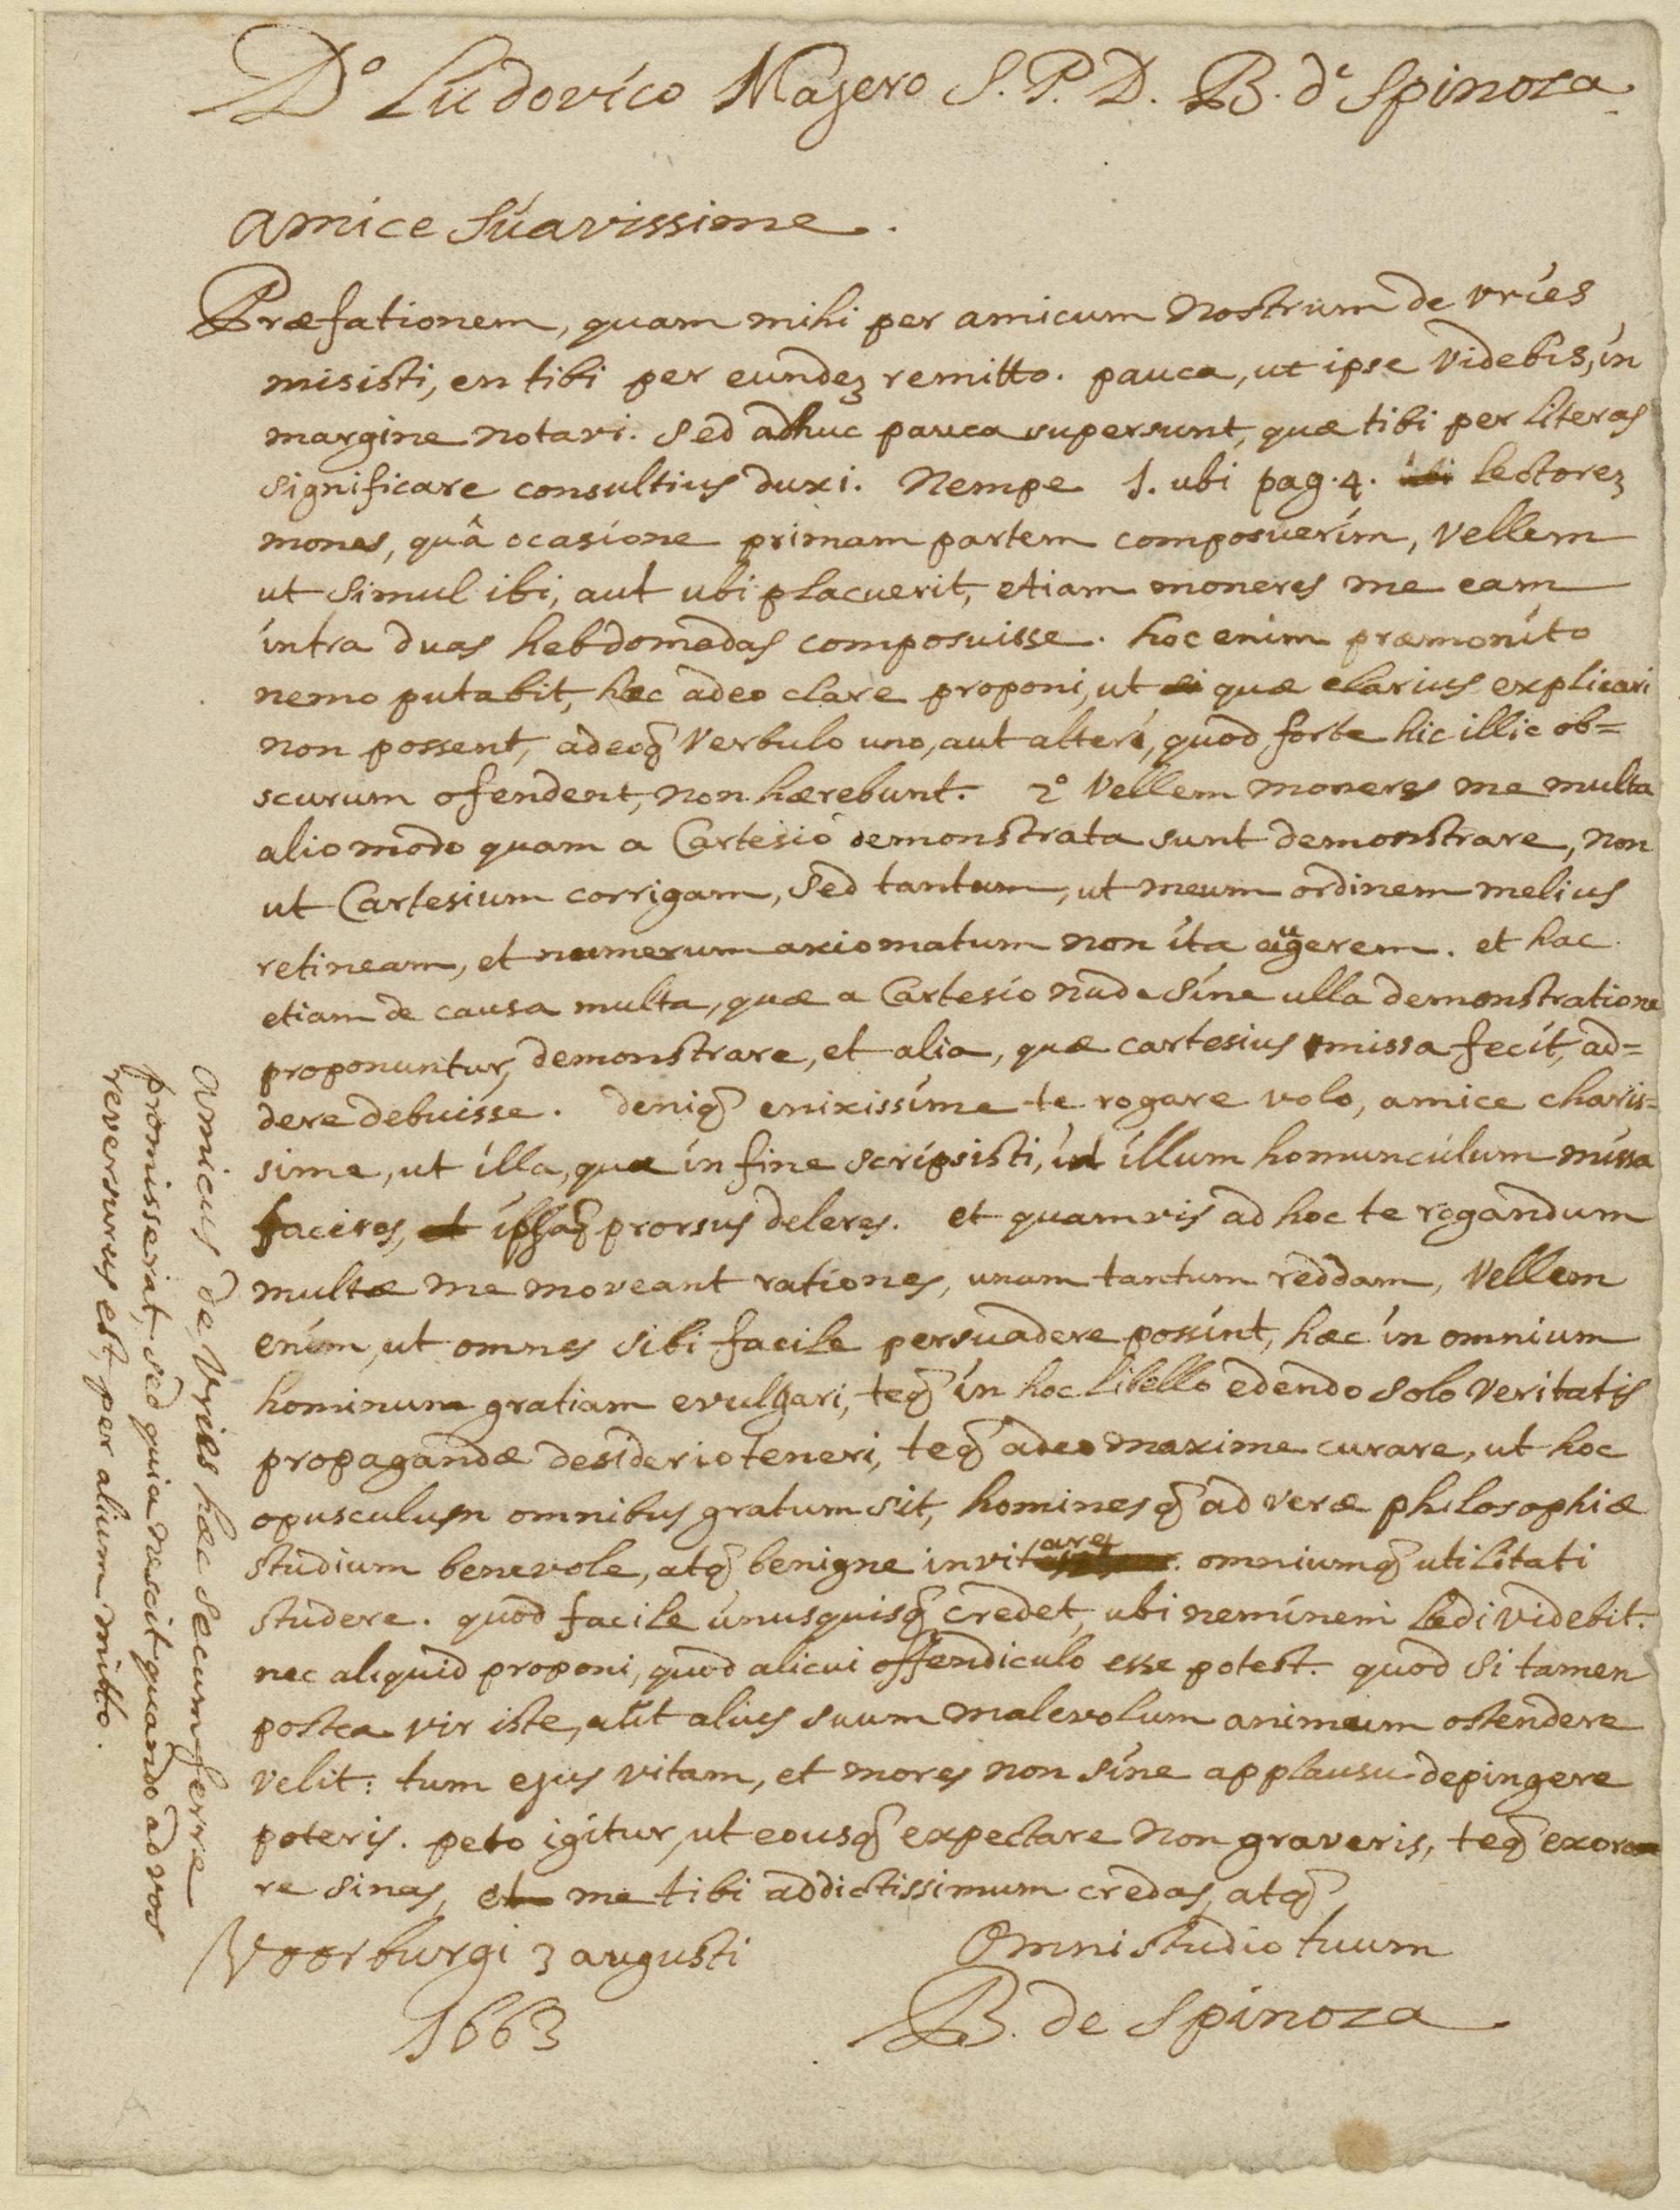 Do Ludovico Majero S. P. D. B. de Spinoza.
Amice suavissime.
Præfationem, quam mihi per amicum nostrum de vries
misisti, en tibi per eundeȝ remitto. pauca, ut ipse videbis, in
margine notavi. sed adhuc pauca supersunt, quæ tibi per literas
significare consultius duxi. Nempe 1. ubi pag. 4. lectoreȝ
mones, quâ ocasione primam partem composuerim, vellem
ut simul ibi, aut ubi placuerit, etiam moneres me eam
intra duas hebdomadas composuisse. hoc enim præmonito
nemo putabit, hæc adeo clare proponi, ut quæ clarius explicari
non possent, adeoq̃ verbulo uno, aut alteri, quod forte hic illic ob=
scurum ofendent, non hærebunt. 2o vellem moneres me multa
alio modo quam a Cartesio demonstrata sunt demonstrare, non
ut Cartesium corrigam, sed tantum, ut meum ordinem melius
retineam, et numerum axiomatum non ita augerem. et hac
etiam de causa multa, quæ a Cartesio nude sine ulla demonstratione
proponuntur, demonstrare, et alia, quæ cartesius missa fecit, ad=
dere debuisse. deniq̃ enixissime te rogare volo, amice charis=
sime, ut illa, quæ in fine scripsisti, in illum homunculum missa
faceres, ipsaq̃ prorsus deleres. et quamvis ad hoc te rogandum
multæ me moveant rationes, unam tantum reddam, vellem
enim, ut omnes sibi facile persuadere possint, hæc in omnium
hominum gratiam evulgari, teq̃ in hoc libello edendo solo veritatis
propagandæ desiderio teneri, teq̃ adeo maxime curare, ut hoc
opusculum omnibus gratum sit, hominesq̃ ad veræ philosophiæ
studium benevole, atq̃ benigne invitare, omniumq̃ utilitati
studere. quod facile unusquisq̃ credet, ubi neminem lædi videbit.
nec aliquid proponi, quod alicui offendiculo esse potest. quod si tamen
postea vir iste, aut alius suum malevolum animum ostendere
velit: tum ejus vitam, et mores non sine applausu depingere
poteris. peto igitur, ut eousq̃ expectare non graveris, teq̃ exora
re sinas, et me tibi addictissimum credas, atq̃
Omni studio tuum
Voorburgi 3 augusti
1663
B. de Spinoza
Amicus de Vries hæc secum ferre
promisserat, sed quia nescit quando ad vos
reversurus est, per alium mitto.